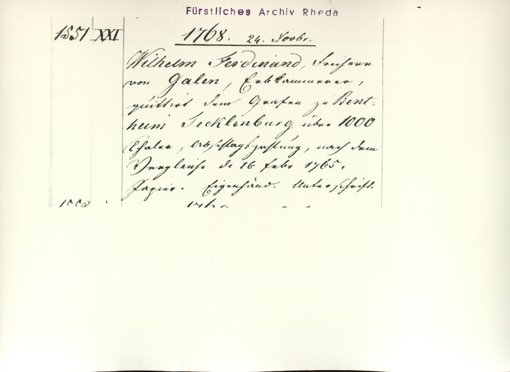 Fürstliches Archiv Rheda
1551 XXI 1768. 24. Novbr.
Wilhelm Ferdinand, Freiherr
von Galen, Erbkämmerer,
quittirt dem Grafen zu Bent-
heim Tecklenburg über 1000
Thaler, Abschlagszahlung, nach dem
Vergleiche de 16 Febr 1765.
Papier. Eigenhänd. Unterschrift.